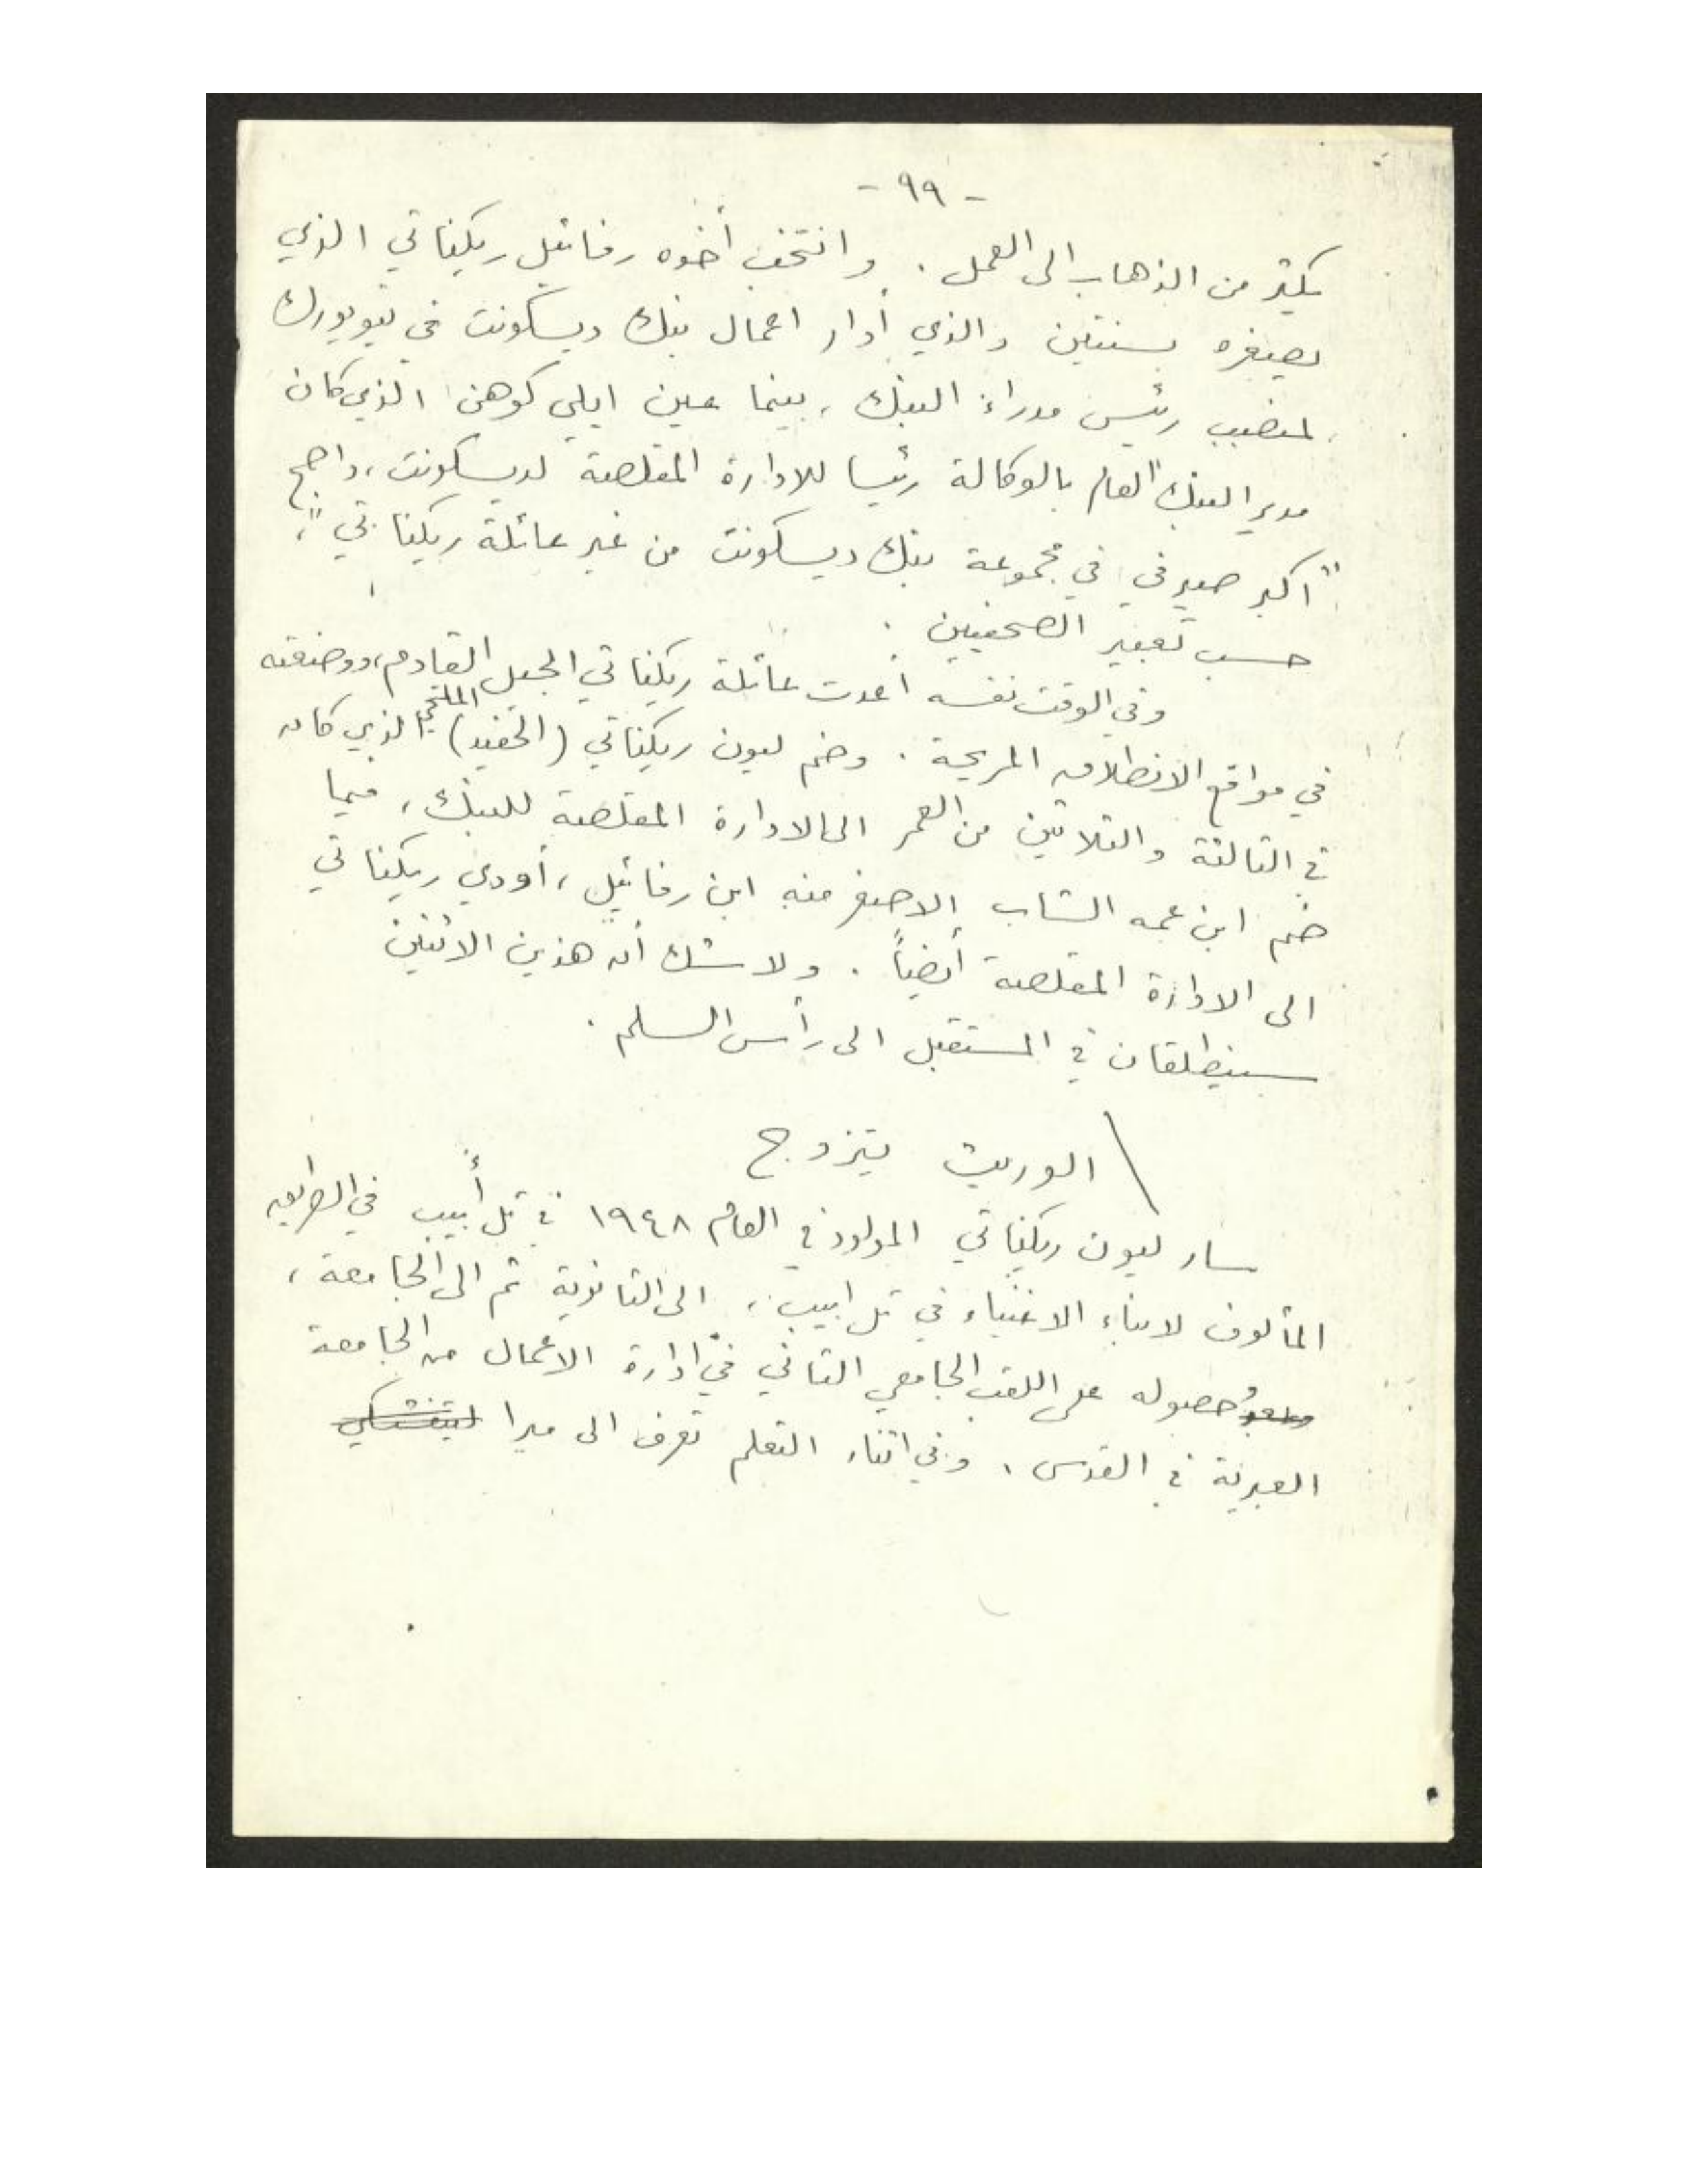 - ٩٩ -
يكثر من الذهاب الى العمل. وانتخب أخوه رفائيل ريكناتي الذي
يصغره بسنتين والذي أدار اعمال بنك ديسكونت في نيويورك
لمنصب رئيس مدراء البنك، بينما عين ايلي كوهن الذي كان
مدير البنك العام بالوكالة رئيسا للادارة المقلصة لديسكونت، واصبح
"اكبر صيرفي في مجموعة بنك ديسكونت من غير عائلة ريكناتي"،
حسب تعبير الصحفيين.
وفي الوقت نفسه أعدت عائلة ريكناتي الجيل القادم، ووضعته
في مواقع الانطلاق المريحة. وضم ليون ريكناتي (الحفيد) الملتحي الذي كان
في الثالثة والثلاثين من العمر الى الادارة المقلصة للبنك، فيما
ضم ابن عمه الشاب الاصغر منه ابن رفائيل، أودي ريكناتي
الى الادارة المقلصة أيضاً. ولا شك أن هذين الاثنين
سينطلقان في المستقبل الى رأس السلم.
الوريث يتزوج
سار ليون ريكناتي المولود في العام ١٩٤٨ في تل أبيب في الطريق
المألوف لابناء الاغنياء في تل ابيب، الى الثانوية ثم الى الجامعة،
وحصوله على اللقب الجامعي الثاني في ادارة الاعمال من الجامعة
العبرية في القدس. وفي اثناء التعلم تعرف الى ميرا